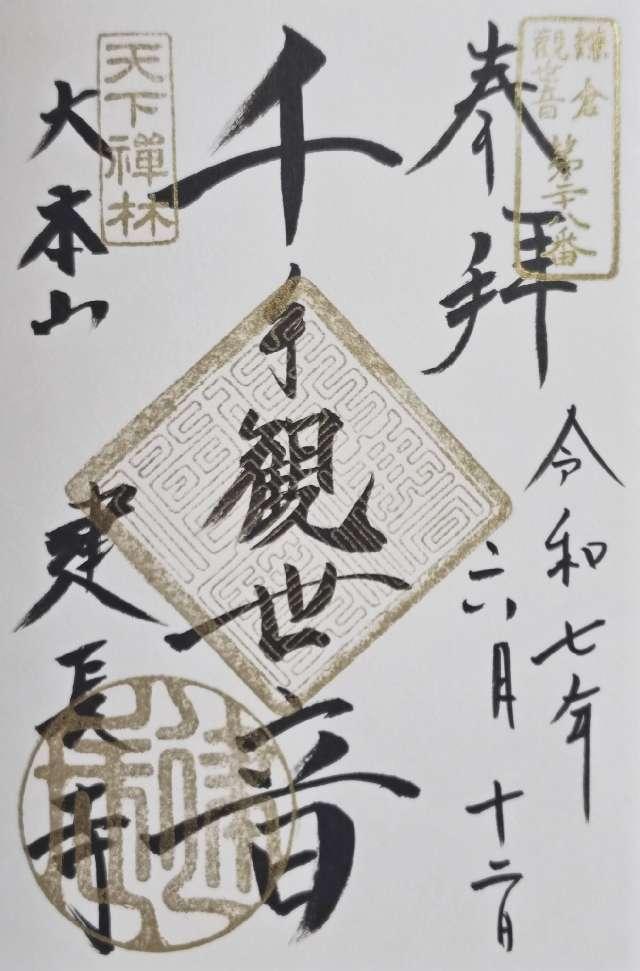 鎌倉
觀世音
第二十八番
奉拝
令和七年
六月十二日
千手観世音
天下禪林
大本山
建長寺